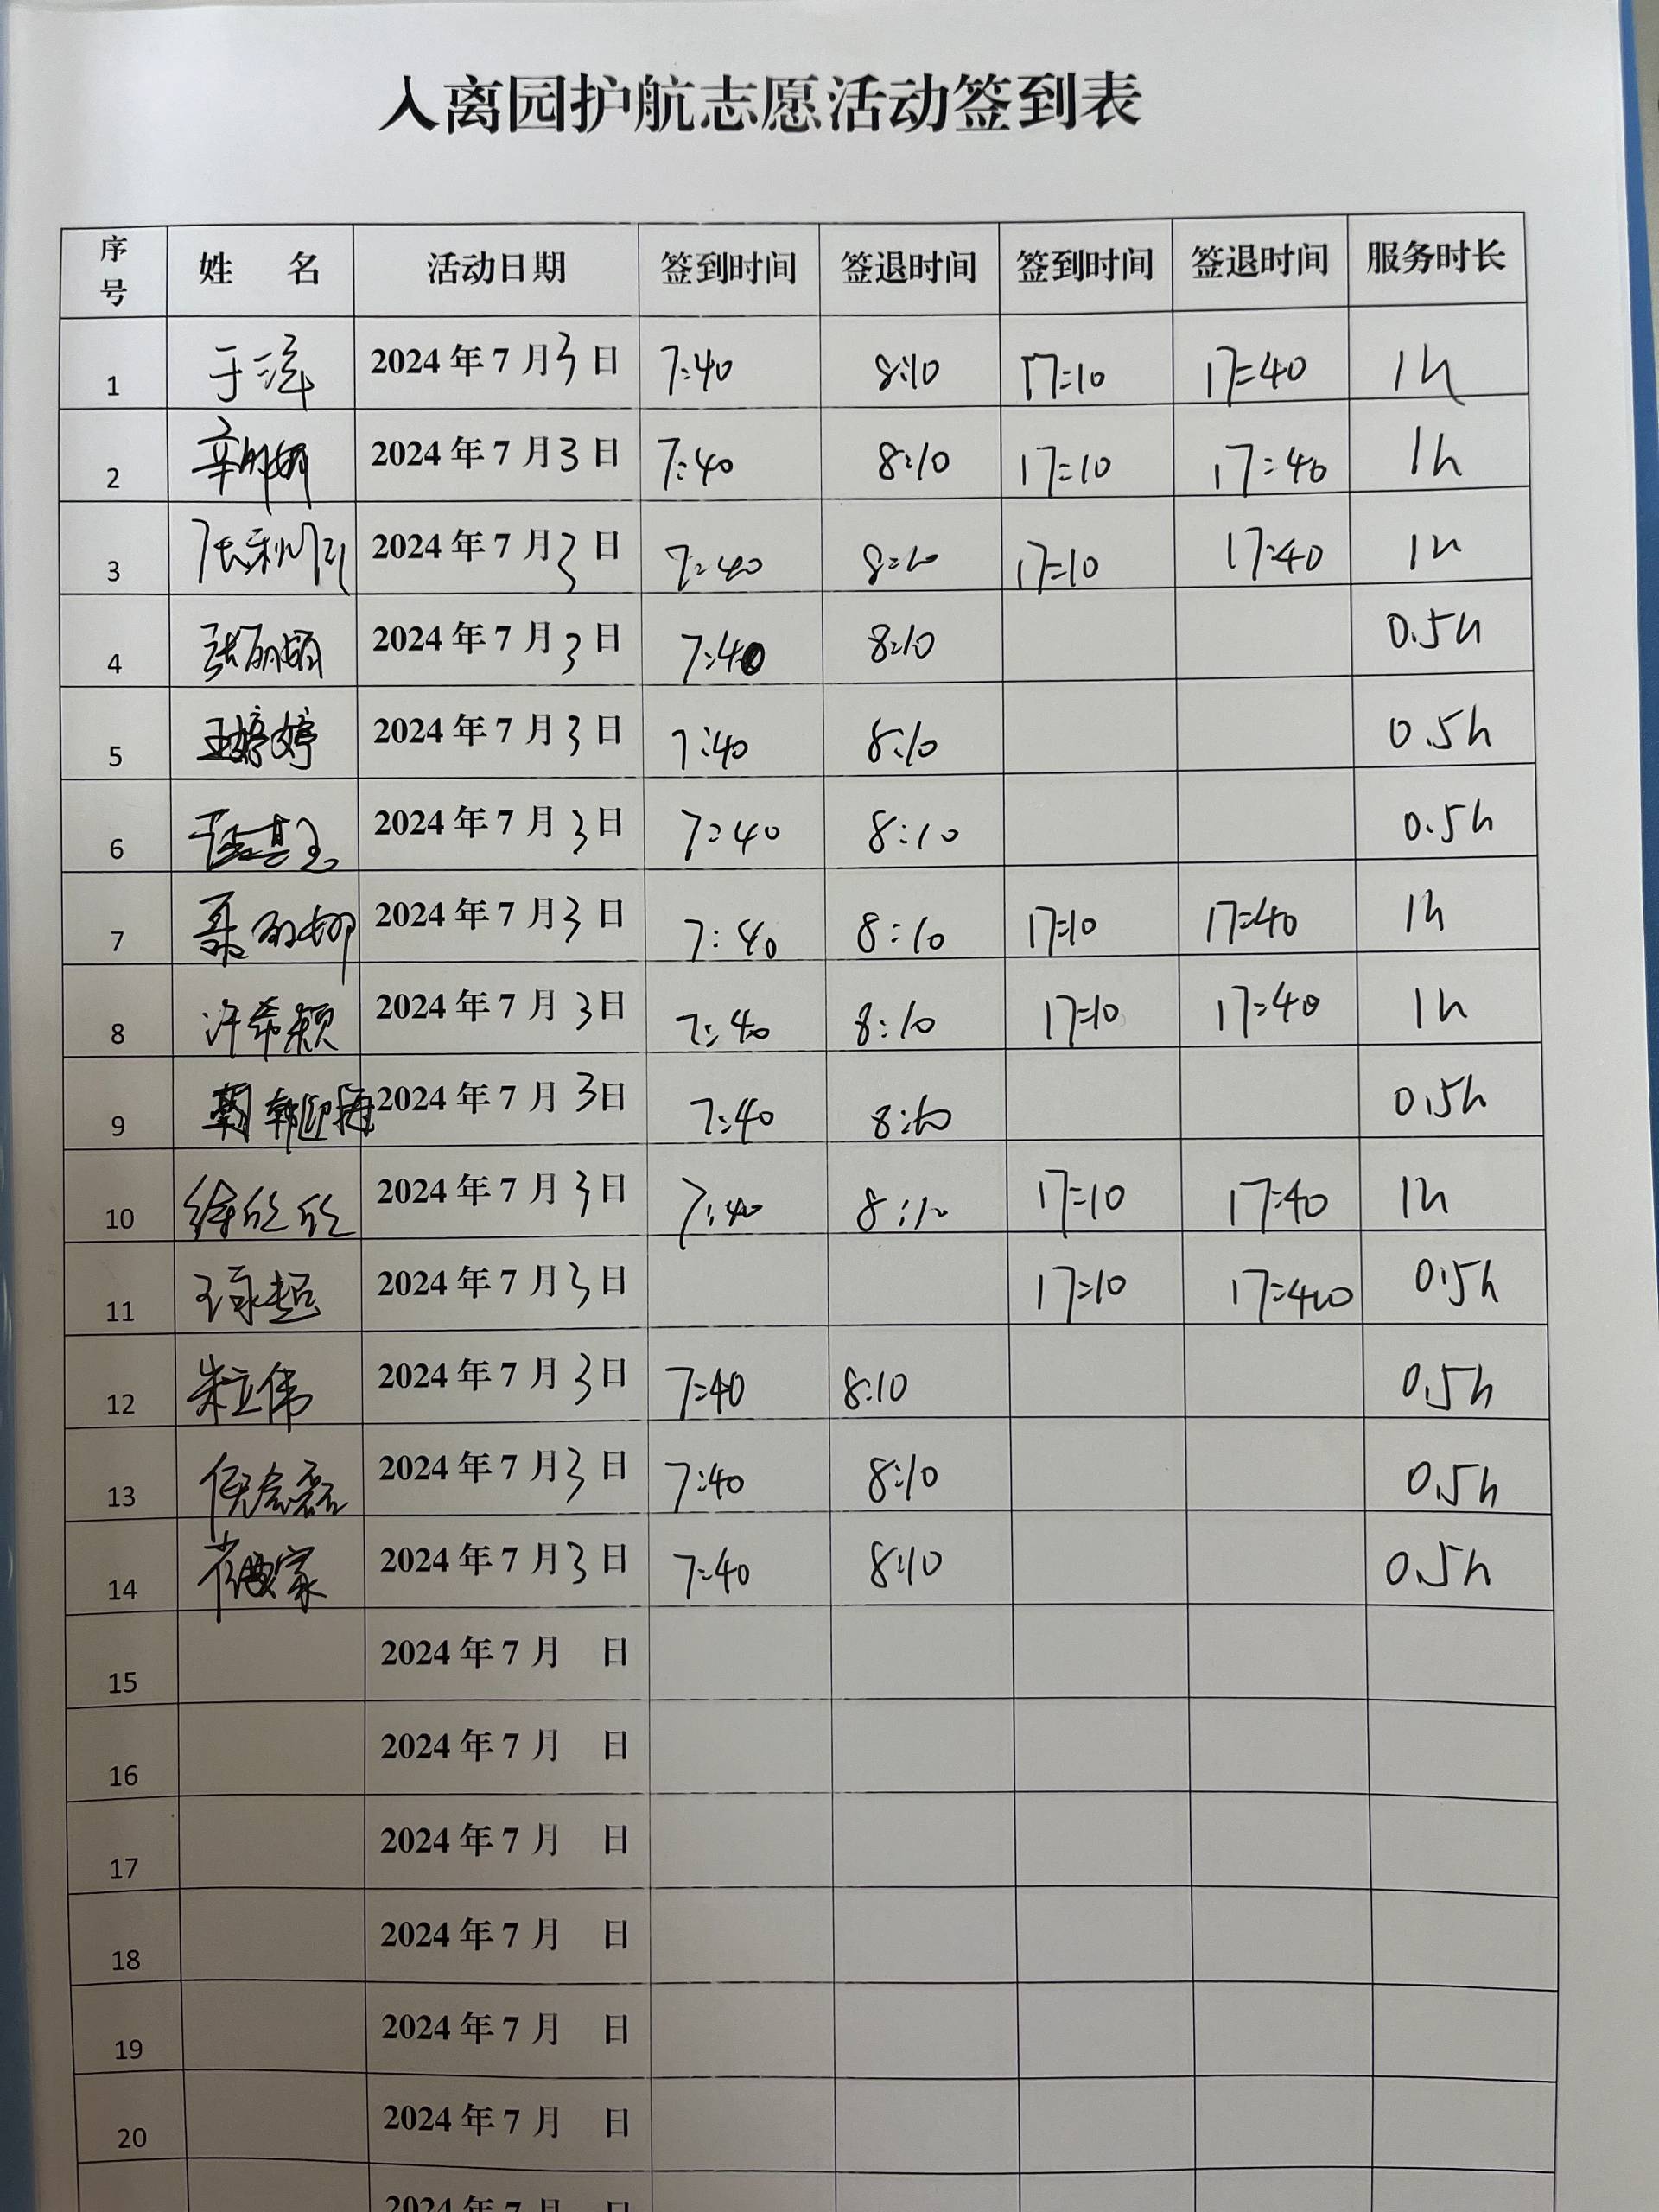 入离园护航志愿活动签到表
序号 姓 名 活动日期 签到时间 签退时间 签到时间 签退时间 服务时长
1 于洋 2024年7月3日 7:40 8:10 17:10 17:40 1h
2 2024年7月3日 7:40 8:10 17:10 17:40 1h
3 2024年7月3日 7:40 8:10 17:10 17:40 1h
4 2024年7月3日 7:40 8:10 0.5h
5 王婷婷 2024年7月3日 7:40 8:10 0.5h
6 2024年7月3日 7:40 8:10 0.5h
7 2024年7月3日 7:40 8:10 17:10 17:40 1h
8 许希颖 2024年7月3日 7:40 8:10 17:10 17:40 1h
9 2024年7月3日 7:40 8:10 0.5h
10 徐欣欣 2024年7月3日 7:40 8:10 17:10 17:40 1h
11 2024年7月3日 17:10 17:40 0.5h
12 朱立伟 2024年7月3日 7:40 8:10 0.5h
13 2024年7月3日 7:40 8:10 0.5h
14 2024年7月3日 7:40 8:10 0.5h
15 2024年7月 日
16 2024年7月 日
17 2024年7月 日
18 2024年7月 日
19 2024年7月 日
20 2024年7月 日
2024年7月 日